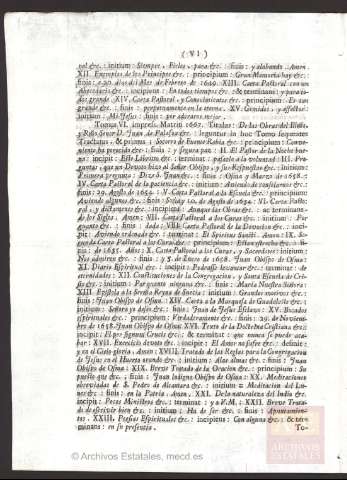 (VI)
val &c. initium: Siempre, Fieles, para &c. finis: y alabando. Amen.
XII. Exemplos de los Principes &c. principium: Gran Memoria hay &c.
finis: à 20. dias del Mes de Febrero de 1649. XIII. Carta Pastoral con un
Abecedario &c. incipiens: En todos tiempos &c. & terminans: y para to-
dos grande. XIV. Carta Pastoral, y Conocimientos &c. principium: Es tan
grande &c. finis: perpetuamente en la eterna. XV. Gemidos, y affectos:
initium: Mi Jesus: finis: por adorarte mejor.
Tomus VI. impress. Matriti 1667. Titulus: De las Obras del Illmo,
y Rmo Señor D. Juan de Palafox &c. leguntur in hoc Tomo sequentes
Tractatus, & primus: dozena de Buena Rabia &c. principium: Conve-
niente ha parecido &c. finis: y segura paz. II. El Pastor de la Noche bue-
na: incipit: Este Librito &c. terminat: passarlo à la voluntad. III. Pre-
guntas, que un Devoto hizo al Señor Obispo, y sus Respuestas &c. initium:
Primera pregunta: Diez &c. finis: Osma y Marzo de 1658.
IV. Carta Pastoral de la paciencia &c. initium: Aviendo de consideraros &c.
finis: 29. Agosto de 1654. V. Carta Pastoral de la Escuela &c. principium:
Aviendo algunos &c. finis: 10. de Agosto de 1654. VI. Carta Pasto-
ral, y dictamenes &c. incipiens: Aunque las Obras &c. ac terminans:
de los Siglos. Amen. VII. Carta Pastoral de los Curas &c. initium: Por
quanto &c. finis: dado. VIII. Carta Pastoral de la Devocion &c. inci-
pit: Aviendo ordenado &c. terminat: El Spiritus Santi. Amen. IX. Se-
gunda Carta Pastoral à los Curas &c. principium: &c. fi-
nis: de 1655. Años. X. Carta Pastoral à los Curas, y Sacerdotes: initium:
Nos admiren &c. finis: à 5. de Enero de 1658. Juan Obispo de Osma.
XI. Diario Espiritual &c. incipit: Podrasse levantar &c. terminat: de
eternidades. XII. Constituciones de la Congregacion, y Santa Escuela de Chris-
to &c. initium: Por quanto algunos &c. finis: Maria Nuestra Señora.
XIII. Epistola à la Serma Reyna de Suecia: initium: Grandes motivos &c.
finis: Juan Obispo de Osma. XIV. Carta à la Marquesa de Guadaleste &c.
initium: Señora yo dexo &c. finis: Juan de Jesus Esclavo. XV. Bocados
espirituales &c. principium: Verdaderamente &c. finis: 29. de Noviem-
bre de 1658. Juan Obispo de Osma. XVI. Trato de la Doctrina Christiana &c.
incipit: El por Signum Crucis &c. & terminat: que nunca se puede aca-
bar. XVII. Exercicio devoto &c. incipit: El Amor no sufre &c. definit:
y en el Cielo gloria. Amen. XVIII. Tratado de las Reglas para la Congregacion
de Jesus en el Huerto orando &c. initium: esta almas &c. finis: Juan
Obispo de Osma. XIX. Breve Tratado de la Oracion &c. principium: Su-
puesto que &c. finis: Juan indigno Obispo de Osma. XX. Meditaciones
abreviadas de S. Pedro de Alcantara &c. initium: Meditacion del Lu-
nes &c. finis: en la Patria. Amen. XXI. De la naturaleza del Indio &c.
incipit: Pocos Ministros &c. terminat: y a V.M. XXII. Breve Trata-
do de escrivir bien &c. initium: Ha de ser &c. finis: Apuntamien-
tos. XXIII. Poesias Espirituales &c. incipiens: Con alguna &c. & ter-
minans: en su presencia.
To-
ARCHIVOS
ESTATALES
© Archivos Estatales, mecd.es